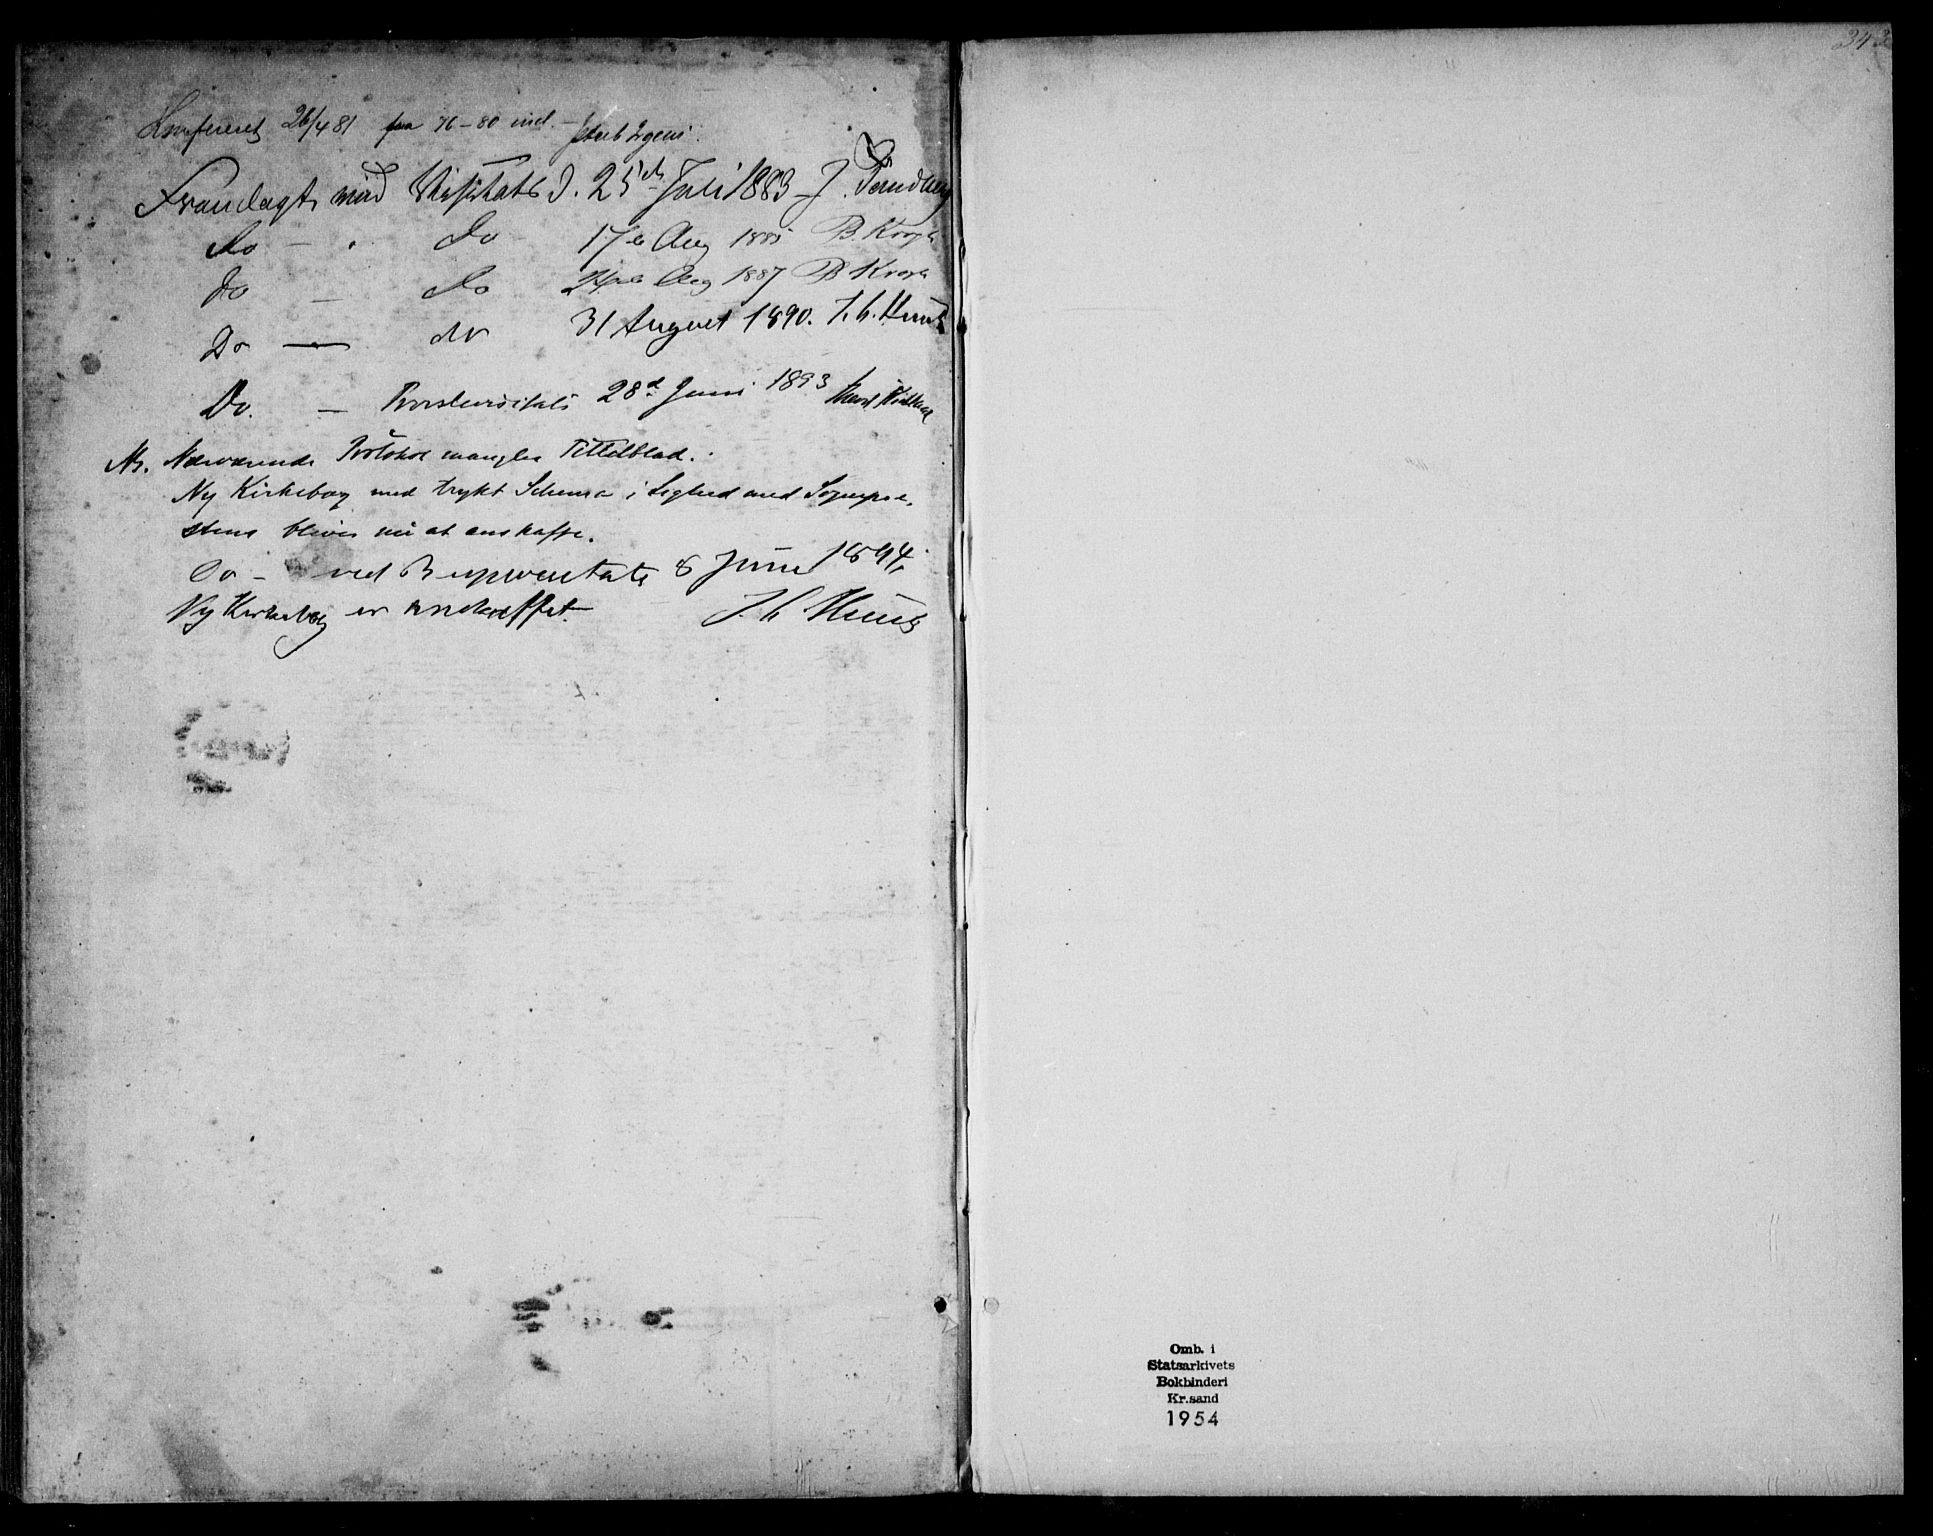 Konfereret 26/4 81 fra 76-80 incl. - Jakob Irgens.
Fremlagt ved Visitats d. 25de Juli 1883 J. Tandberg
Do - Do 17de Aug 1885 B Krogh
Do - Do 24de Aug 1887 B Krogh
Do - do 31 August 1890. J. C. Heuch
Do. - Provstevisitats 28d Juni 1893
Nb. Nærværende Protokol mangler Tittelblad.
Ny Kirkebog med trykt Schema i Lighed med Sognepræ-
stens bliver nu at anskaffe.
Do - ved Bispevisitats 8 Juni 1894.
Ny Kirkebog er anskaffet. J. C. Heuch
343
Omb. i
Statsarkivets
Bokbinderi
Kr.sand
1954